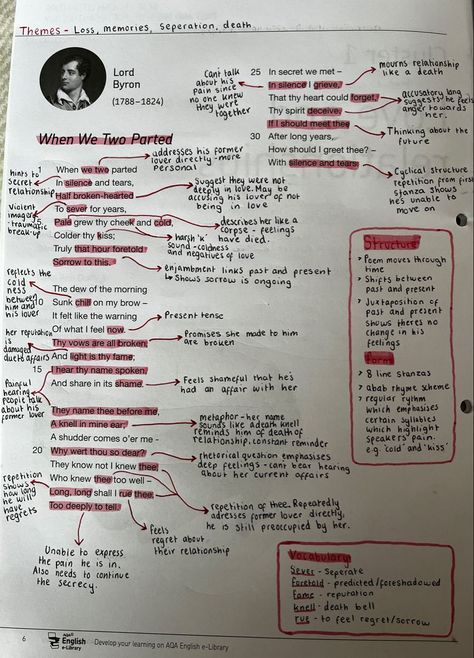 Themes - Loss, memories, seperation, death
Lord
Byron
(1788–1824)
When We Two Parted
1 When we two parted
In silence and tears,
Half broken-hearted
To sever for years,
5 Pale grew thy cheek and cold,
Colder thy kiss;
Truly that hour foretold
Sorrow to this.
The dew of the morning
10 Sunk chill on my brow –
It felt like the warning
Of what I feel now.
Thy vows are all broken,
And light is thy fame;
15 I hear thy name spoken,
And share in its shame.
They name thee before me,
A knell in mine ear;
A shudder comes o'er me –
20 Why wert thou so dear?
They know not I knew thee,
Who knew thee too well –
Long, long shall I rue thee,
Too deeply to tell.
25 In secret we met –
In silence I grieve,
That thy heart could forget,
Thy spirit deceive.
If I should meet thee
30 After long years,
How should I greet thee? –
With silence and tears.
Cant talk
about his
pain since
no one knew
they were
together
mourns relationship
like a death
accusatory
suggests he feels
anger towards
her.
Thinking about the
future
Cyclical structure
repetition from first
stanza shows
hes unable to
move on
addresses his former
lover directly - more
personal
hints to
secret
relationship
Suggest they were not
deeply in love. May be
accusing his lover of not
being in love
Violent
imagery
traumatic
break-up
describes her like a
corpse - feelings
have died.
harsh 'k'
sound - coldness
and negatives of love
enjambment links past and present
↳ Shows sorrow is ongoing
reflects the
cold
ness
between
him and
his lover
Present tense
Promises she made to him
are broken
her reputation
is
damaged
due to affairs
Feels shameful that he's
had an affair with her
Painful
hearing
people talk
about his
former lover
metaphor - her name
sounds like a death knell
reminds him of death of
relationship. constant reminder
rhetorical question emphasises
deep feelings - cant bear hearing
about her current affairs
repetition
shows
how long
he will
have
regrets
repetition of thee. Repeatedly
adresses former lover directly,
he is still preoccupied by her.
feels
regret about
their relationship
Unable to express
the pain he is in.
Also needs to continue
the secrecy.
Structure
Poem moves through
time
Shifts between
past and present
Juxtaposition of
past and present
shows theres no
change in his
feelings
Form
8 line stanzas
abab rhyme scheme
regular rythm
which emphasises
certain syllables
which highlight
speakers' pain.
e.g 'cold' and 'kiss'
Vocabulary
Sever - seperate
foretold - predicted/foreshadowed
fame - reputation
knell - death bell
rue - to feel regret/sorrow
6
AQA
English
e-Library
Develop your learning on AQA English e-Library